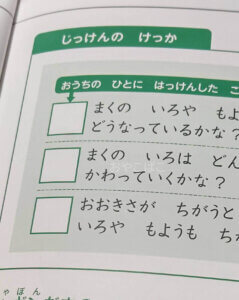 じっけんの けっか
おうちの ひとに はっけんした こ
まくの いろや もよ
どうなっているかな?
まくの いろは どん
かわっていくかな?
おおきさが ちがうと
いろや もようも ちか
ゃぼん